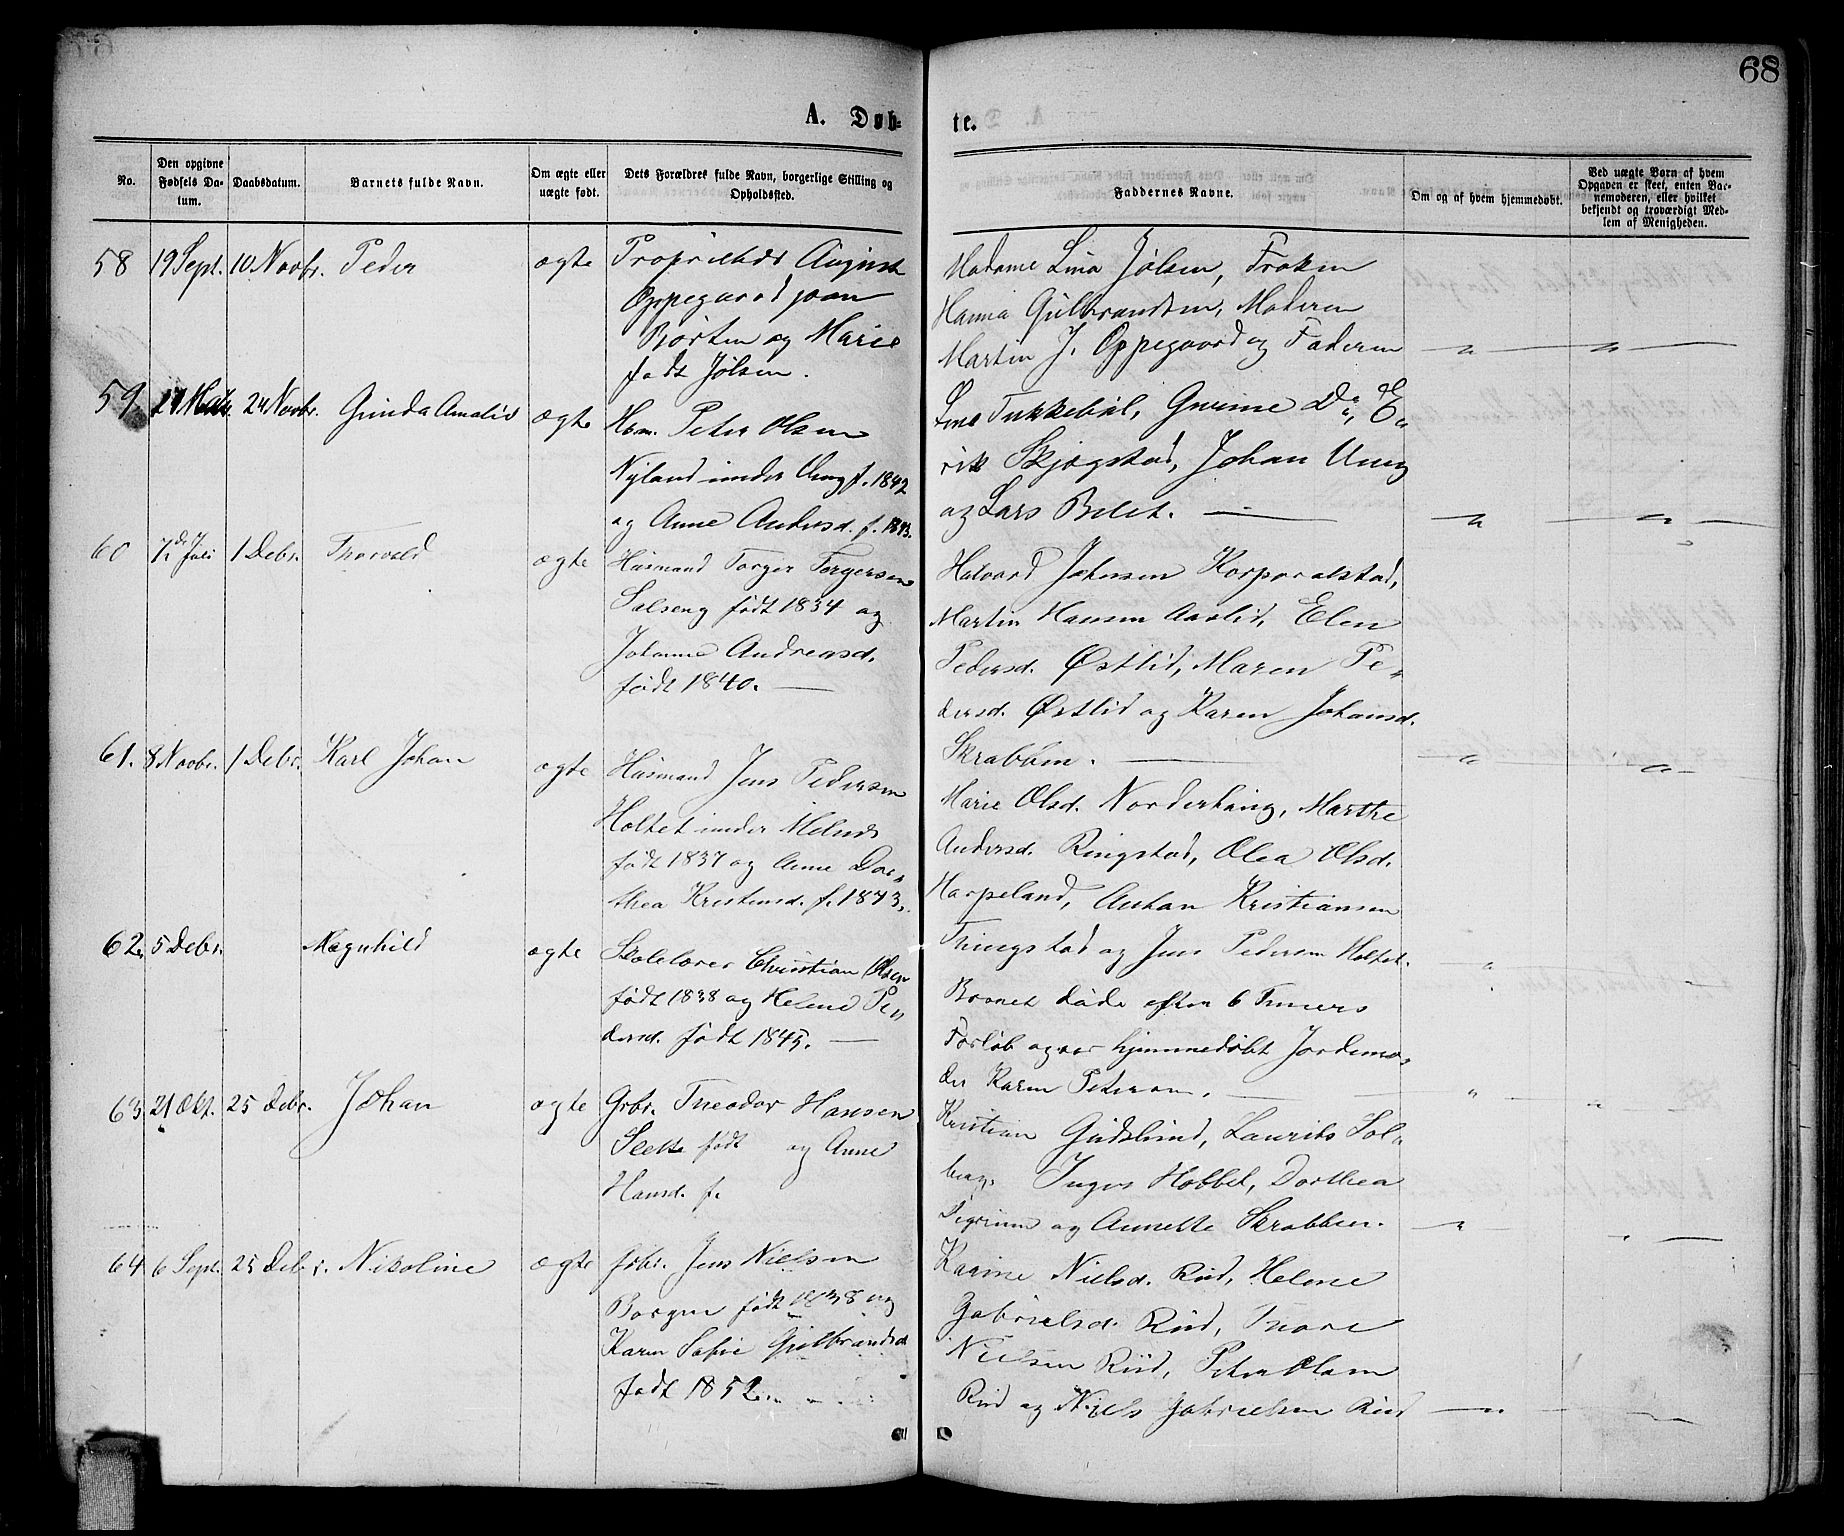 68
A. Døb-
te.
No.
Den opgivne Fødsels Datum.
Daabsdatum.
Barnets fulde Navn.
Om ægte eller uægte født.
Dets Forældres fulde Navn, borgerlige Stilling og Opholdssted.
Faddernes Navne.
Om og af hvem hjemmedøbt.
Ved uægte Barn af hvem Opgaven er skeet, enten Barnemoderen, eller hvilket bekjendt og troværdigt Medlem af Menigheden.
58 19 Sept. 10 Novbr. Peder ægte Proprietær August
Oppegaard paa
Børten og Marie
født Jølsen.
Madame Lina Jølsen, Frøken
Hanna Gulbrandsen, Moderen
Martin J. Oppegaard og Faderen
59. 24 Novbr. Gunda Amalie ægte Hsm. Peter Olsen
Nyland under Ung f. 1842
og Anne Andersd. f. 1843.
Lene Tukkebøl, Gurine Do, E-
rik Skjægstad, Johan Ung
og Lars Bilet.
60 7de Juli 1 Debr. Thorvald ægte Husmand Torger Torgersen
Salseng født 1834 og
Johanne Andreasd.
født 1840.
Halvard Johnsen Korporalstad,
Martin Hansen Aaslid, Elen
Pedersd. Østlid, Maren Pe-
dersd. Østlid og Karen Johansd.
Skrabben.
61. 8 Novbr. 1 Debr. Karl Johan ægte Husmand Jens Pedersen
Holtet under Melnes
født 1837 og Anne Dor-
thea Kristensd. f. 1843.
Marie Olsd. Norderhaug, Marthe
Andersd. Ringstad, Olea Olsd.
Harpeland, Anton Kristiansen
Tringstad og Jens Pedersen Holtet.
62. 5 Debr. Magnhild ægte Skolelærer Christian Olsen
født 1838 og Helene Pe-
dersd. født 1845.
Barnet døde efter 6 Timers
Forløb og var hjemmedøbt Jordemo-
der Karen Peterson.
63. 21 Okt. 25 Debr. Johan ægte Grbr. Theodor Hansen
født og Anne
Hansd. f.
Kristian Gudslund, Laurits Sol-
berg, Inger Hobbel, Dorthea
og Annette Skrabben.
64 6 Sept. 25 Debr. Nikoline ægte Grbr. Jens Nielsen
Borgen født 1838 og
Karen Sofie Gulbrandsd
født 1852.
Karine Nielsd. Rud, Helene
Gabrielsd. Rud, Thore
Nielsen Rud, Peter Olsen
Rud og Niels Gabrielsen Rud